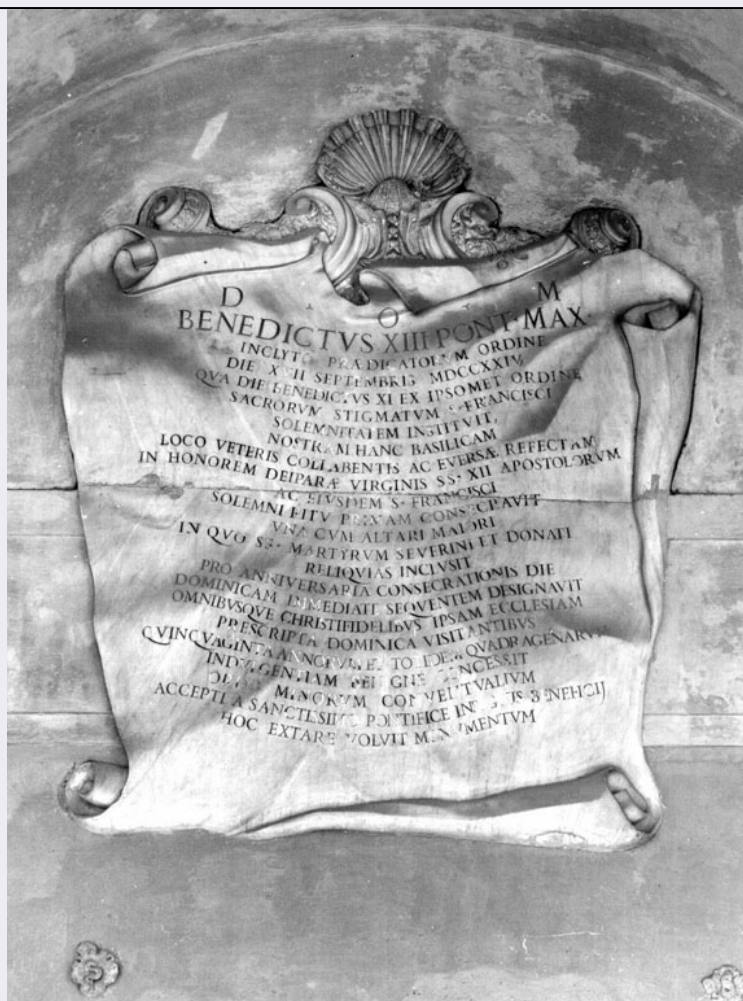 D O M
BENEDICTVS XIII PONT· MAX·
INCLYTO PRÆDICATORVM ORDINE
DIE XVII SEPTEMBRIS MDCCXXIV
QVA DIE BENEDICTVS XI EX IPSOMET ORDINE
SACRORVM STIGMATVM S· FRANCISCI
SOLEMNITATEM INSTITVIT,
NOSTRAM HANC BASILICAM
LOCO VETERIS COLLABENTIS AC EVERSÆ REFECTAM
IN HONOREM DEIPARÆ VIRGINIS SS· XII APOSTOLORVM
AC EIVSDEM S· FRANCISCI
SOLEMNI RITV PRIMAM CONSECRAVIT
VNA CVM ALTARI MAIORI
IN QVO SS· MARTYRVM SEVERINI ET DONATI
RELIQVIAS INCLVSIT
PRO ANNIVERSARIA CONSECRATIONIS DIE
DOMINICAM IMMEDIATE SEQVENTEM DESIGNAVIT
OMNIBVSQVE CHRISTIFIDELIBVS IPSAM ECCLESIAM
PRESCRIPTA DOMINICA VISITANTIBVS
QVINQVAGINTA ANNORVM ET TOTIDEM QVADRAGENARVM
INDVLGENTIAM BENIGNE CONCESSIT
MINORVM CONVENTVALIVM
ACCEPTI A SANCTISSIMO PONTIFICE BENEFICIJ
HOC EXTARE VOLVIT MONVMENTVM